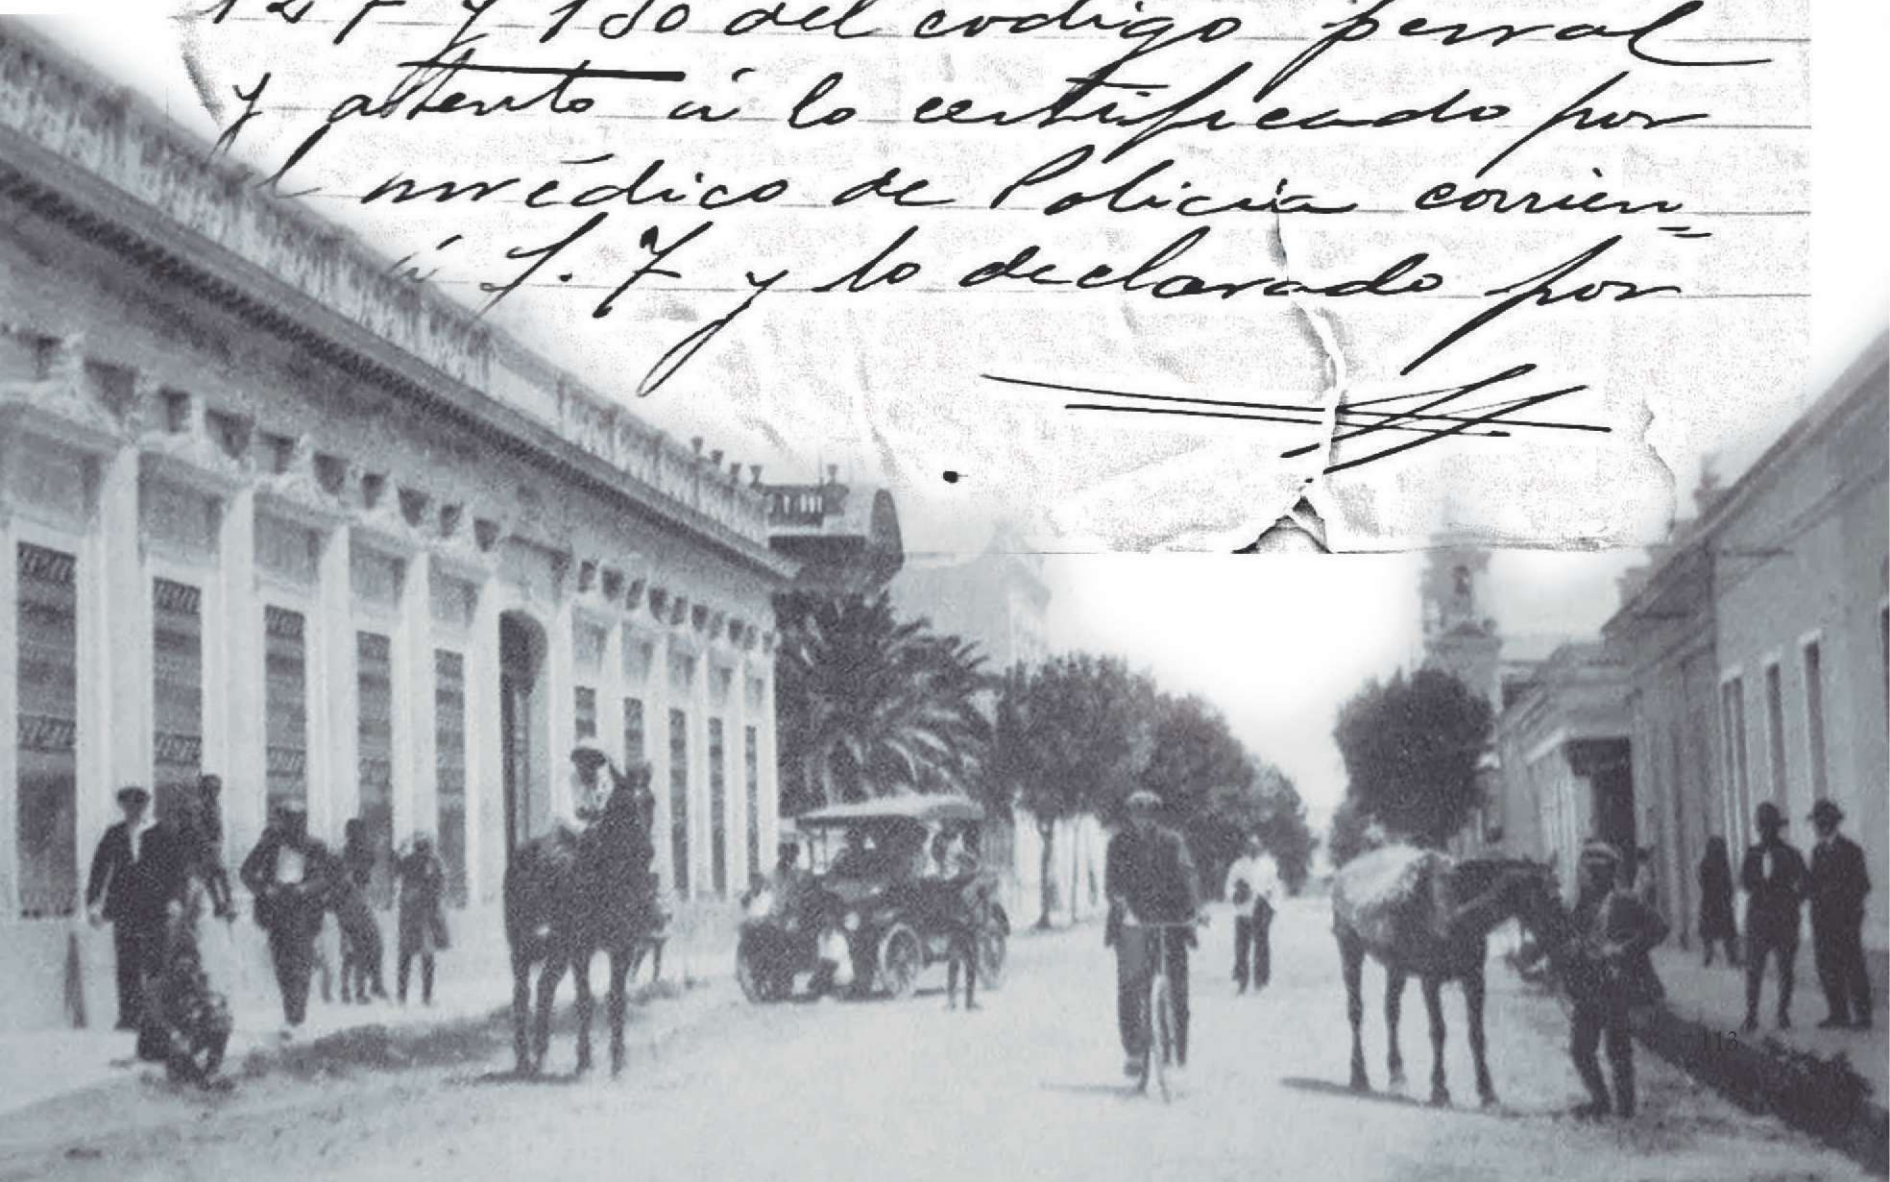 y 130 del codigo penal
y atento á lo certificado por
el médico de Policia corrien=
á f. 7 y lo declarado por
113